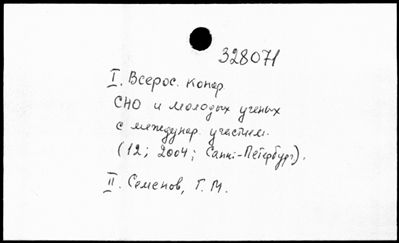 328071
I. Всерос. конф.
СНО и молодых ученых
с междунар. участием.
(12; 2004; Санкт-Петербург).
II. Семенов, Г. М.